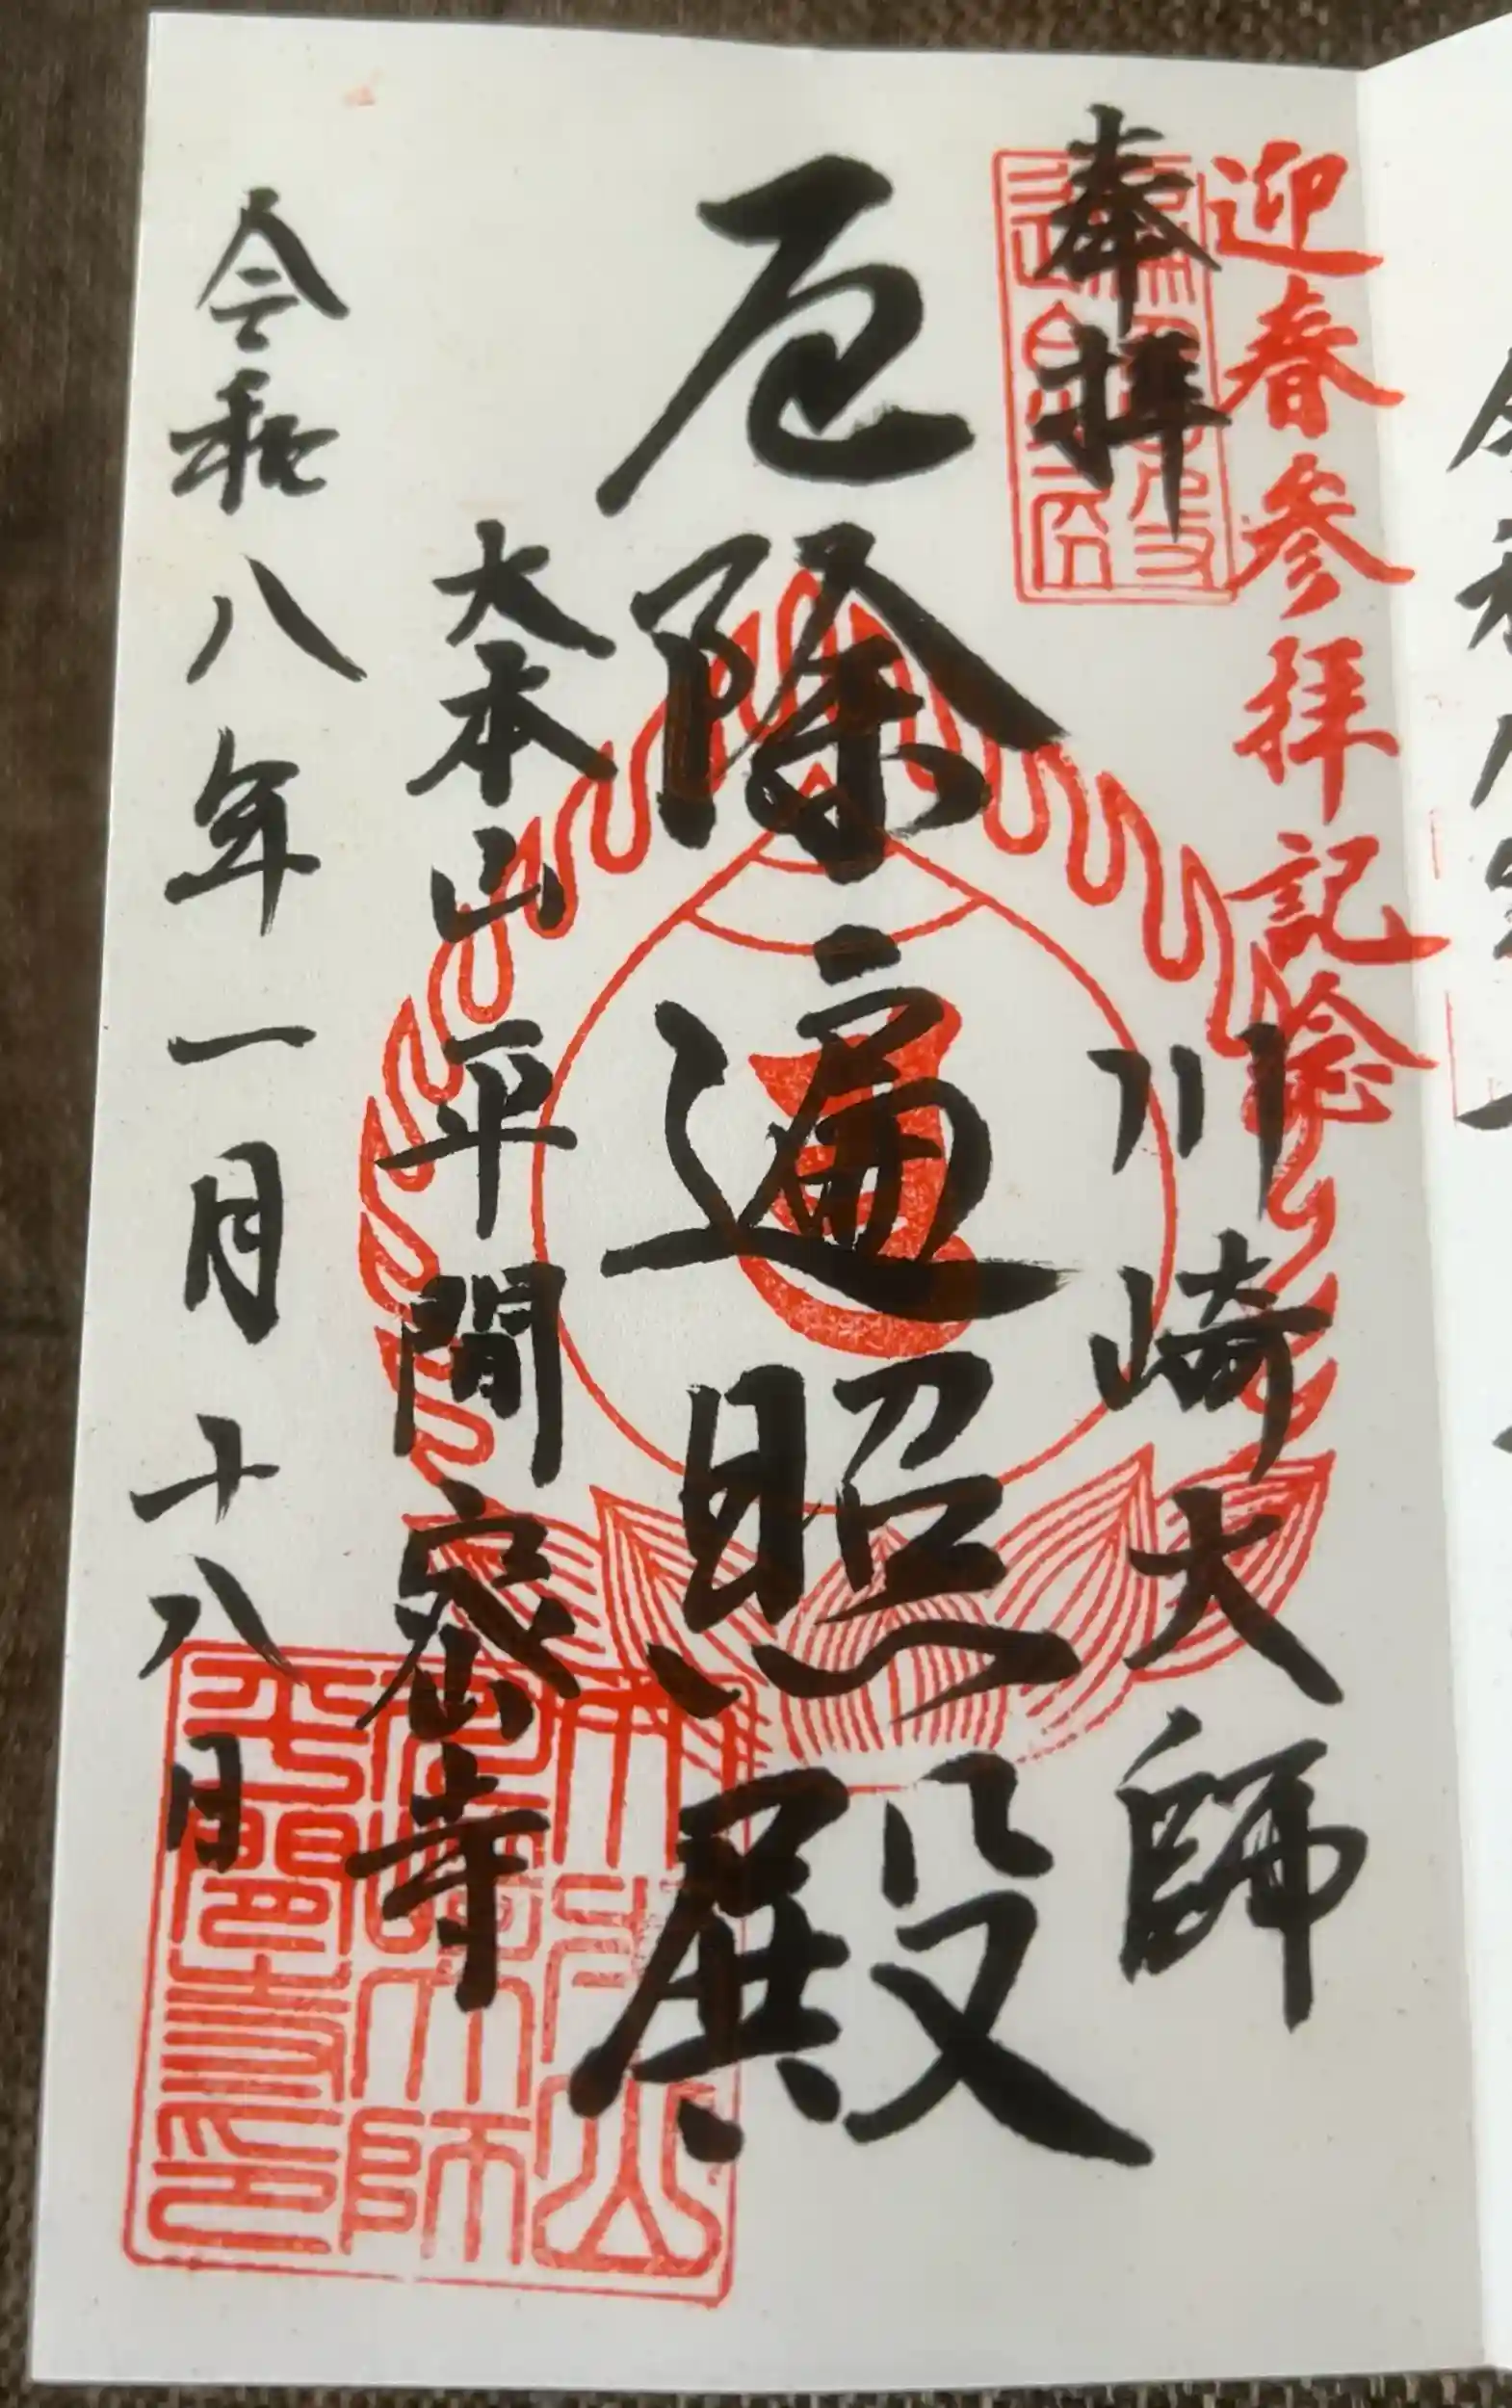 迎春参拝記念
奉拝
川崎大師
厄除遍照殿
大本山平間密寺
令和八年一月十八日